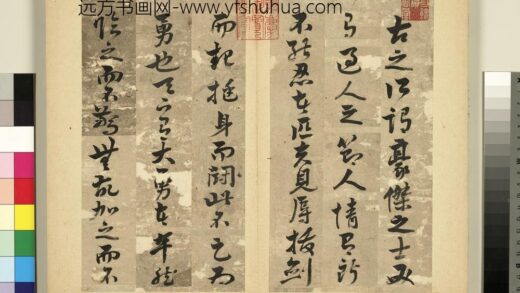 远方书画网-www.yfshuhua.com
古之所謂豪傑之士必
有過人之節人情有所
不能忍者匹夫見辱拔劍
而起挺身而鬪此不足為
勇也天下有大勇者卒然
臨之而不驚無故加之而不